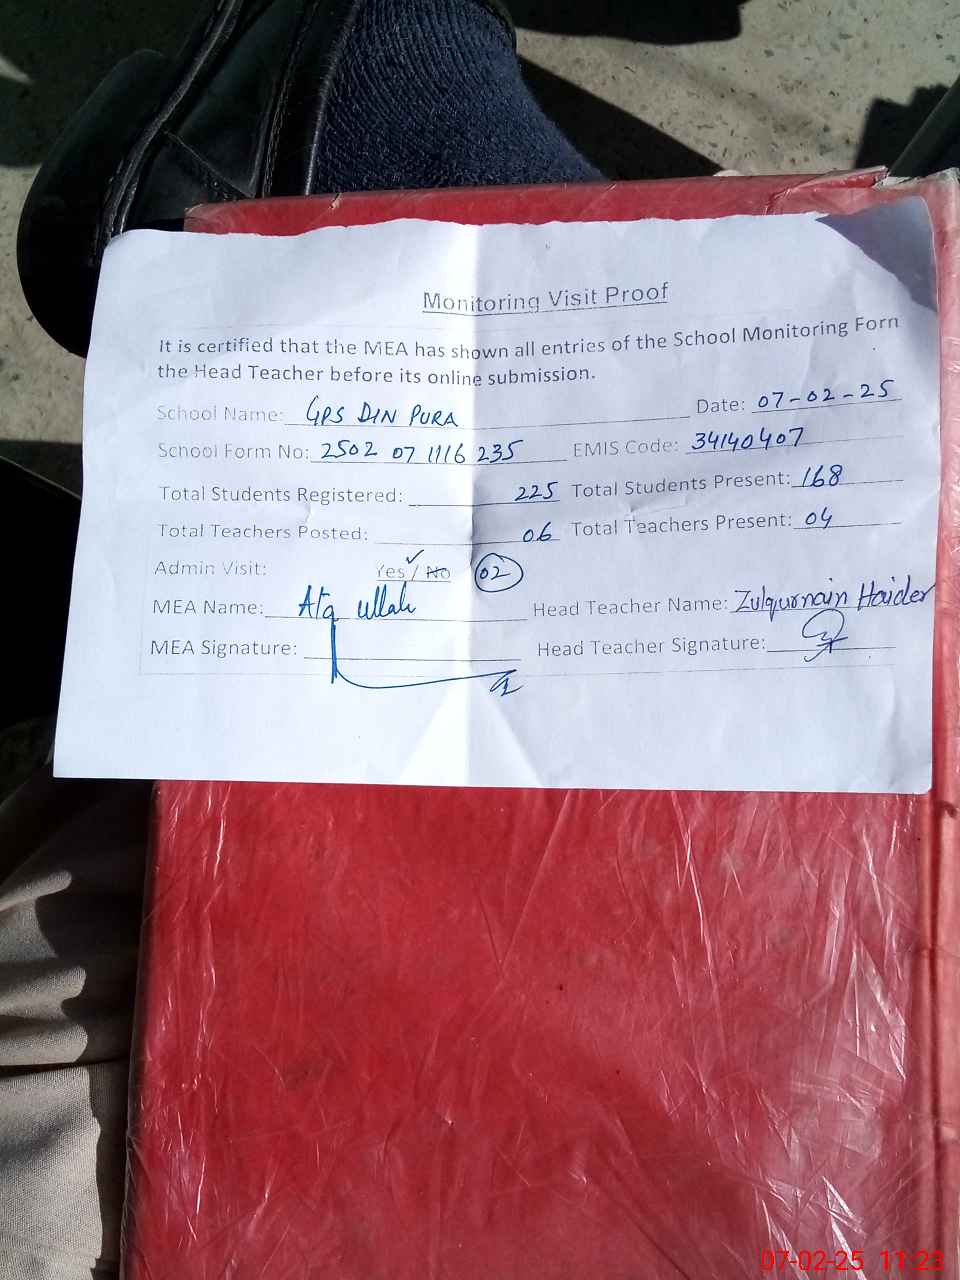 Monitoring Visit Proof
It is certified that the MEA has shown all entries of the School Monitoring Forn
the Head Teacher before its online submission.
School Name: GPS DIN PURA Date: 07-02-25
School Form No: 2502 07 1116 235 EMIS Code: 34140407
Total Students Registered: 225 Total Students Present: 168
Total Teachers Posted: 06 Total Teachers Present: 04
Admin Visit: Yes ✓ / No 02
MEA Name: Ata ullah Head Teacher Name: Zulqurnain Haider
MEA Signature: Head Teacher Signature:
07-02-25 11:23